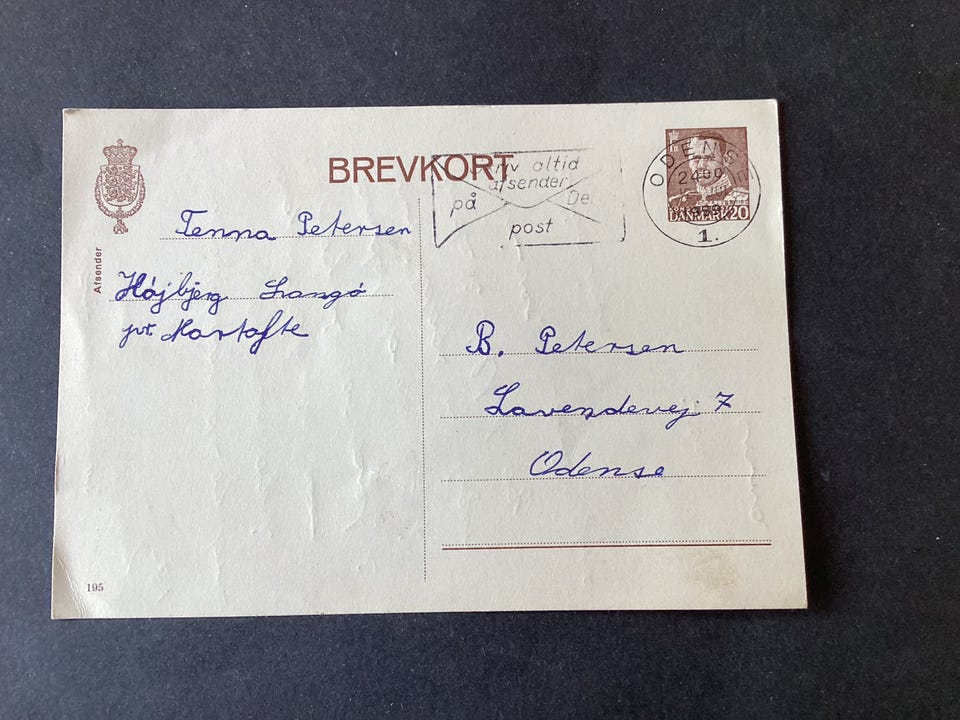 BREVKORT
afsender
altid
på De
post
ODENS
2400
1959
1.
DANMARK 20
Afsender
Tenna Petersen
Højbjerg Langø
pr. Martofte
B. Petersen
Lavendevej 7
Odense
195